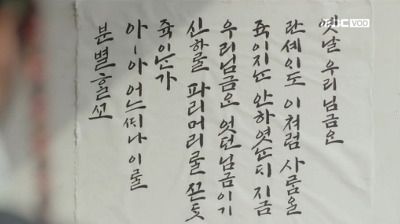 MBC VOD
옛날 우리님금은
란셰에도 이쳐럼 사룸을
쥭이지는 안하엿는디 지금
우리님금은 엇던 님금이기
신하룰 파리머리룰 끈듯
쥭이는가
아-아 어느 나 이룰
분별홀고